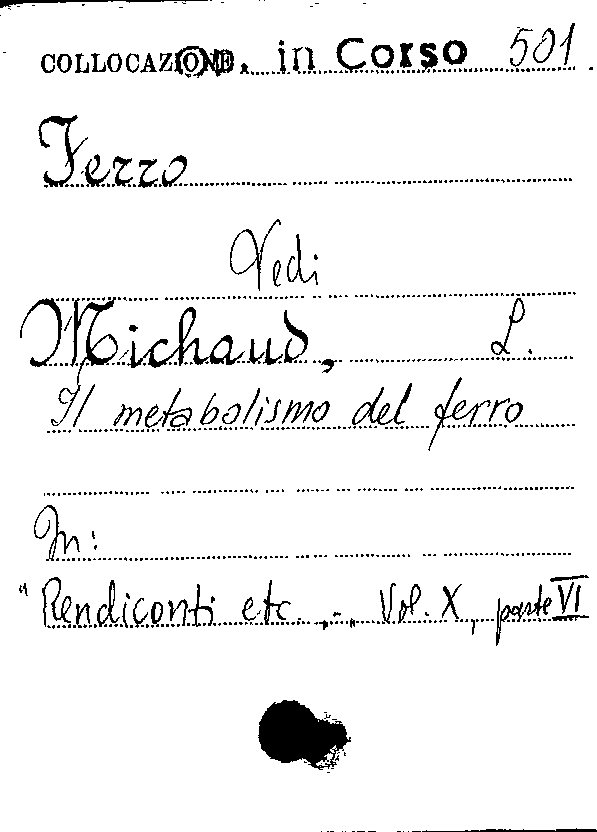 COLLOCAZIONE. in Corso 501
Ferro
Vedi
Michaud, L.
Il metabolismo del ferro
In:
"Rendiconti etc. ,-„ Vol. X, parte VI